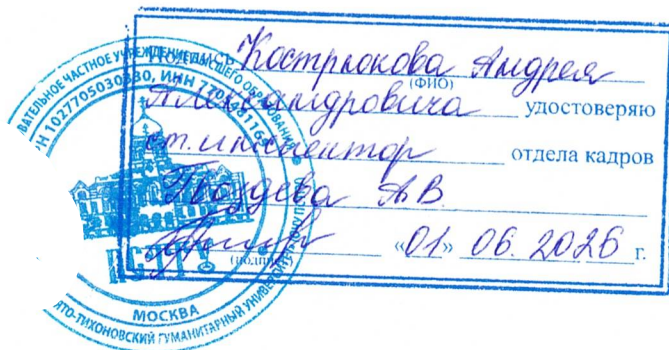 Подпись Кострюкова Андрея
(ФИО)
Александровича удостоверяю
ст. инспектор отдела кадров
Гвоздева А.В.
(подпись) «01» 06. 2026 г.
ВАТЕЛЬНОЕ ЧАСТНОЕ УЧРЕЖДЕНИЕ ВЫСШЕГО ОБРАЗОВАНИЯ
РН 1027705030380, ИНН
МОСКВА
ЯТО-ТИХОНОВСКИЙ ГУМАНИТАРНЫЙ УНИВЕРСИТЕТ